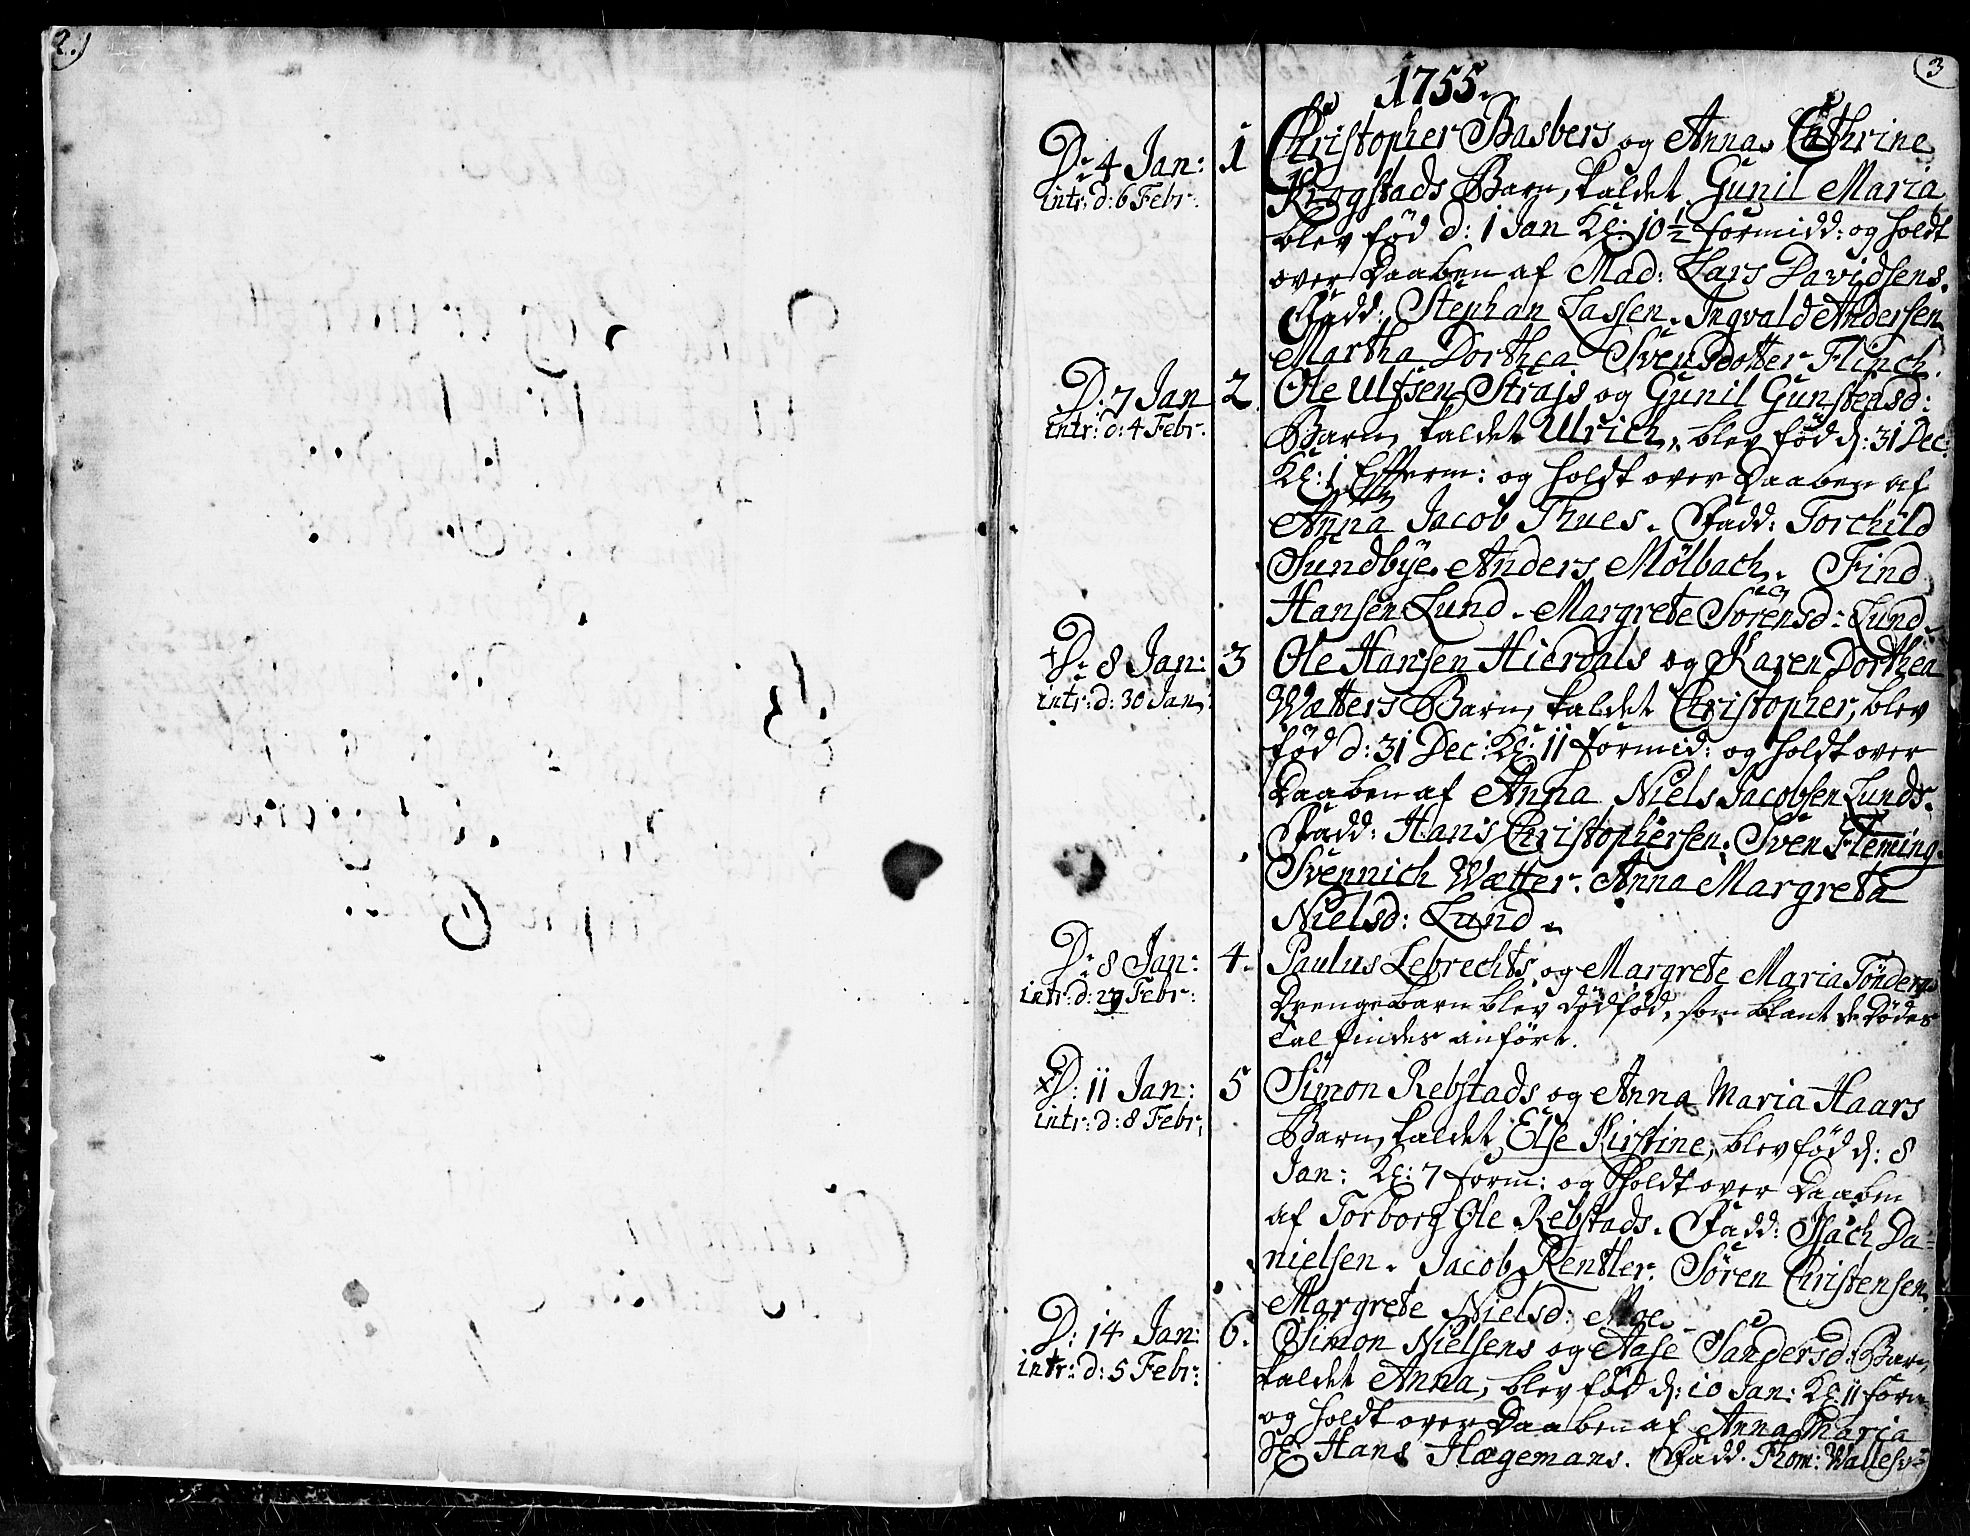 2.)
3
1755.
D: 4 Jan:
intr: d: 6 Febr:
1
Christopher Basbers og Anna Cathrine
Krogstads Barn, kaldet Gunil Maria,
blev fød d: 1 Jan Kl: 10 1/2 formidd: og holdt
over Daaben af Mad: Lars Davidsens.
Fadd: Stephan Lassen. Ingvald Andersen
Martha Dorthea Svensdotter Flinch.
D: 7 Jan
intr: d: 4 Febr:
2
Ole Ulfsen Strajs og Gunil Gunstensd:
Barn, kaldet Ulrich, blev fød d: 31 Dec:
Kl: 1 Efterm: og holdt over Daaben af
Anna Jacob Thues. Fadd: Torchild
Sundbye. Anders Mölbach. Find
Hansen Lund. Margrete Sörensd: Lund.
D: 8 Jan:
intr: d: 30 Jan:
3
Ole Hansen Hierdals og Karen Dorthea
Wætters Barn, kaldet Christopher, blev
fød d: 31 Dec: Kl: 11 formid: og holdt over
Daaben af Anna Niels Jacobsen Lunds.
Fadd: Hans Christophersen. Sven Fleming.
Svennich Wætter. Anna Margreta
Nielsd: Lund.
D: 8 Jan:
intr: d: 27 Febr:
4.
Paulus Lebrechts og Margrete Maria Tönders
Drengebarn blev dödfød, som blant de Dödes
Tal findes anført.
D: 11 Jan:
intr: d: 8 Febr:
5
Simon Rebstads og Anna Maria Haars
Barn, kaldet Else Kirstine, blev fød d: 8
Jan: Kl: 7 form: og holdt over Daaben
af Torborg Ole Rebstads. Fadd: Isach Da=
nielsen. Jacob Rentler. Sören Christensen.
Margrete Nielsd: Moe.
D: 14 Jan:
intr: d: 5 Febr:
6.
Simon Nielsens og Aase Sandersd: Barn,
kaldet Anna, blev fød d: 10 Jan: Kl: 11 form
og holdt over Daaben af Anna Maria
Hans Hagemans. Fadd: Thom: Wallesv=